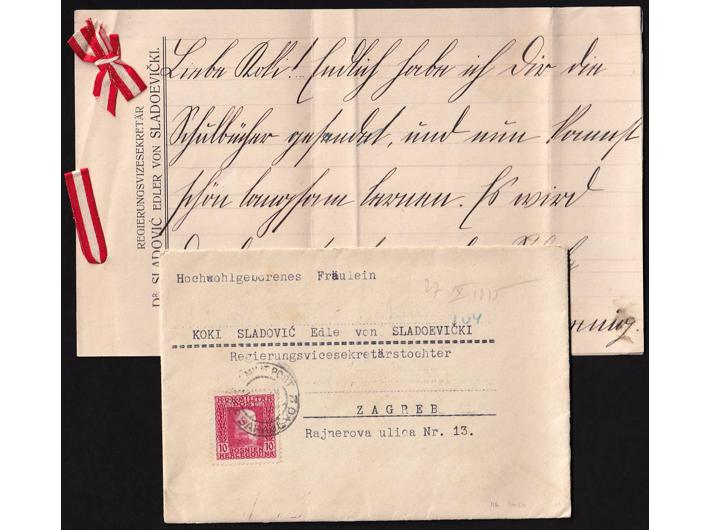 REGIERUNGSVIZESEKRETÄR
DR. SLADOVIĆ EDLER VON SLADOEVIČKI.
Liebe Koki! Endlich habe ich Dir die
Schulbücher gesendet, und nun kannst
schön langsam lernen. Es wird
Hochwohlgeborenes Fräulein
27 IX 1915
104
KOKI SLADOVIĆ Edle von SLADOEVIČKI
Regierungsvicesekretärstochter
ZAGREB
Rajnerova ulica Nr. 13.
MILIT. POST
K.U.K. MILITÄR
POST
10 10
BOSNIEN
HERCEGOVINA